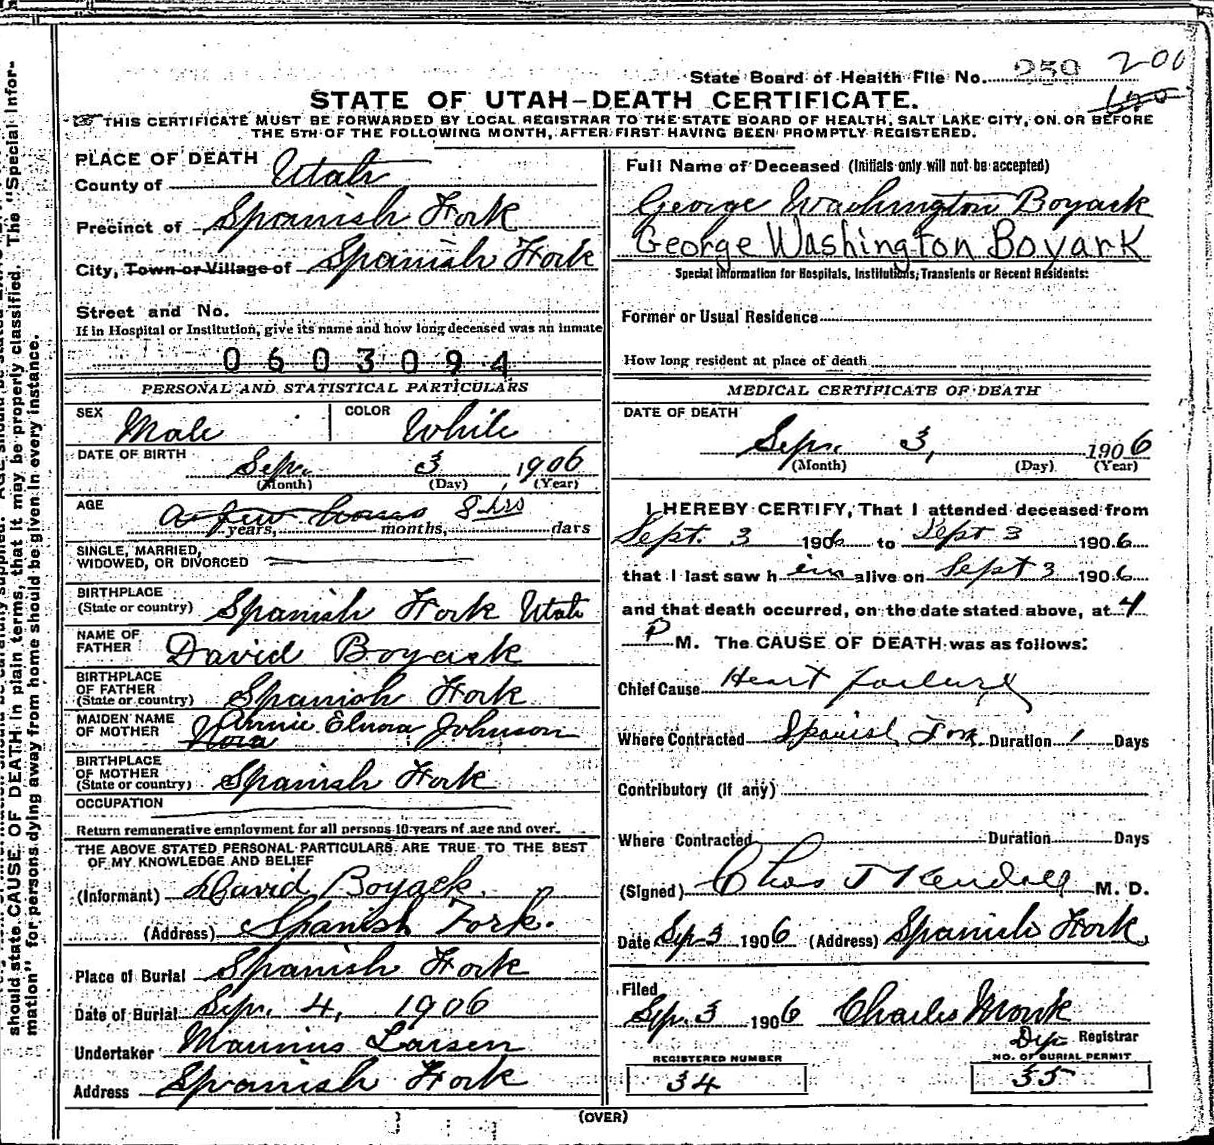 State Board of Health File No. 259 200
STATE OF UTAH-DEATH CERTIFICATE.
THIS CERTIFICATE MUST BE FORWARDED BY LOCAL REGISTRAR TO THE STATE BOARD OF HEALTH, SALT LAKE CITY, ON OR BEFORE
THE 5TH OF THE FOLLOWING MONTH, AFTER FIRST HAVING BEEN PROMPTLY REGISTERED.
PLACE OF DEATH
County of Utah
Precinct of Spanish Fork
City, Town or Village of Spanish Fork
Street and No.
If in Hospital or Institution, give its name and how long deceased was an inmate
0603094
PERSONAL AND STATISTICAL PARTICULARS
SEX Male COLOR White
DATE OF BIRTH
Sep. 3 1906
(Month) (Day) (Year)
AGE a few hours 8 hrs
years, months, days
SINGLE, MARRIED,
WIDOWED, OR DIVORCED
BIRTHPLACE
(State or country) Spanish Fork Utah
NAME OF
FATHER David Boyack
BIRTHPLACE
OF FATHER
(State or country) Spanish Fork
MAIDEN NAME
OF MOTHER Nora Annie Elnora Johnson
BIRTHPLACE
OF MOTHER
(State or country) Spanish Fork
OCCUPATION
Return remunerative employment for all persons 10 years of age and over.
THE ABOVE STATED PERSONAL PARTICULARS ARE TRUE TO THE BEST
OF MY KNOWLEDGE AND BELIEF
(Informant) David Boyack.
(Address) Spanish Fork.
Place of Burial Spanish Fork
Date of Burial Sep. 4, 1906
Undertaker Marinus Larsen
Address Spanish Fork
Full Name of Deceased (Initials only will not be accepted)
George Washington Boyack
George Washington Boyark
Special Information for Hospitals, Institutions, Transients or Recent Residents:
Former or Usual Residence
How long resident at place of death
MEDICAL CERTIFICATE OF DEATH
DATE OF DEATH
Sep. 3, 1906
(Month) (Day) (Year)
I HEREBY CERTIFY, That I attended deceased from
Sept. 3 1906 to Sept 3 1906
that I last saw him alive on Sept 3 1906
and that death occurred, on the date stated above, at 4
P M. The CAUSE OF DEATH was as follows:
Chief Cause Heart failure
Where Contracted Spanish Fork Duration 1 Days
Contributory (if any)
Where Contracted Duration Days
(Signed) Chas T Kendall M. D.
Date Sep 3 1906 (Address) Spanish Fork
Filed
Sep. 3 1906 Charles Monk
Dep Registrar
REGISTERED NUMBER
34
NO. OF BURIAL PERMIT
35
(OVER)
should state CAUSE OF DEATH in plain terms, that it may be properly classified. The "Special Infor-
mation" for persons dying away from home should be given in every instance.